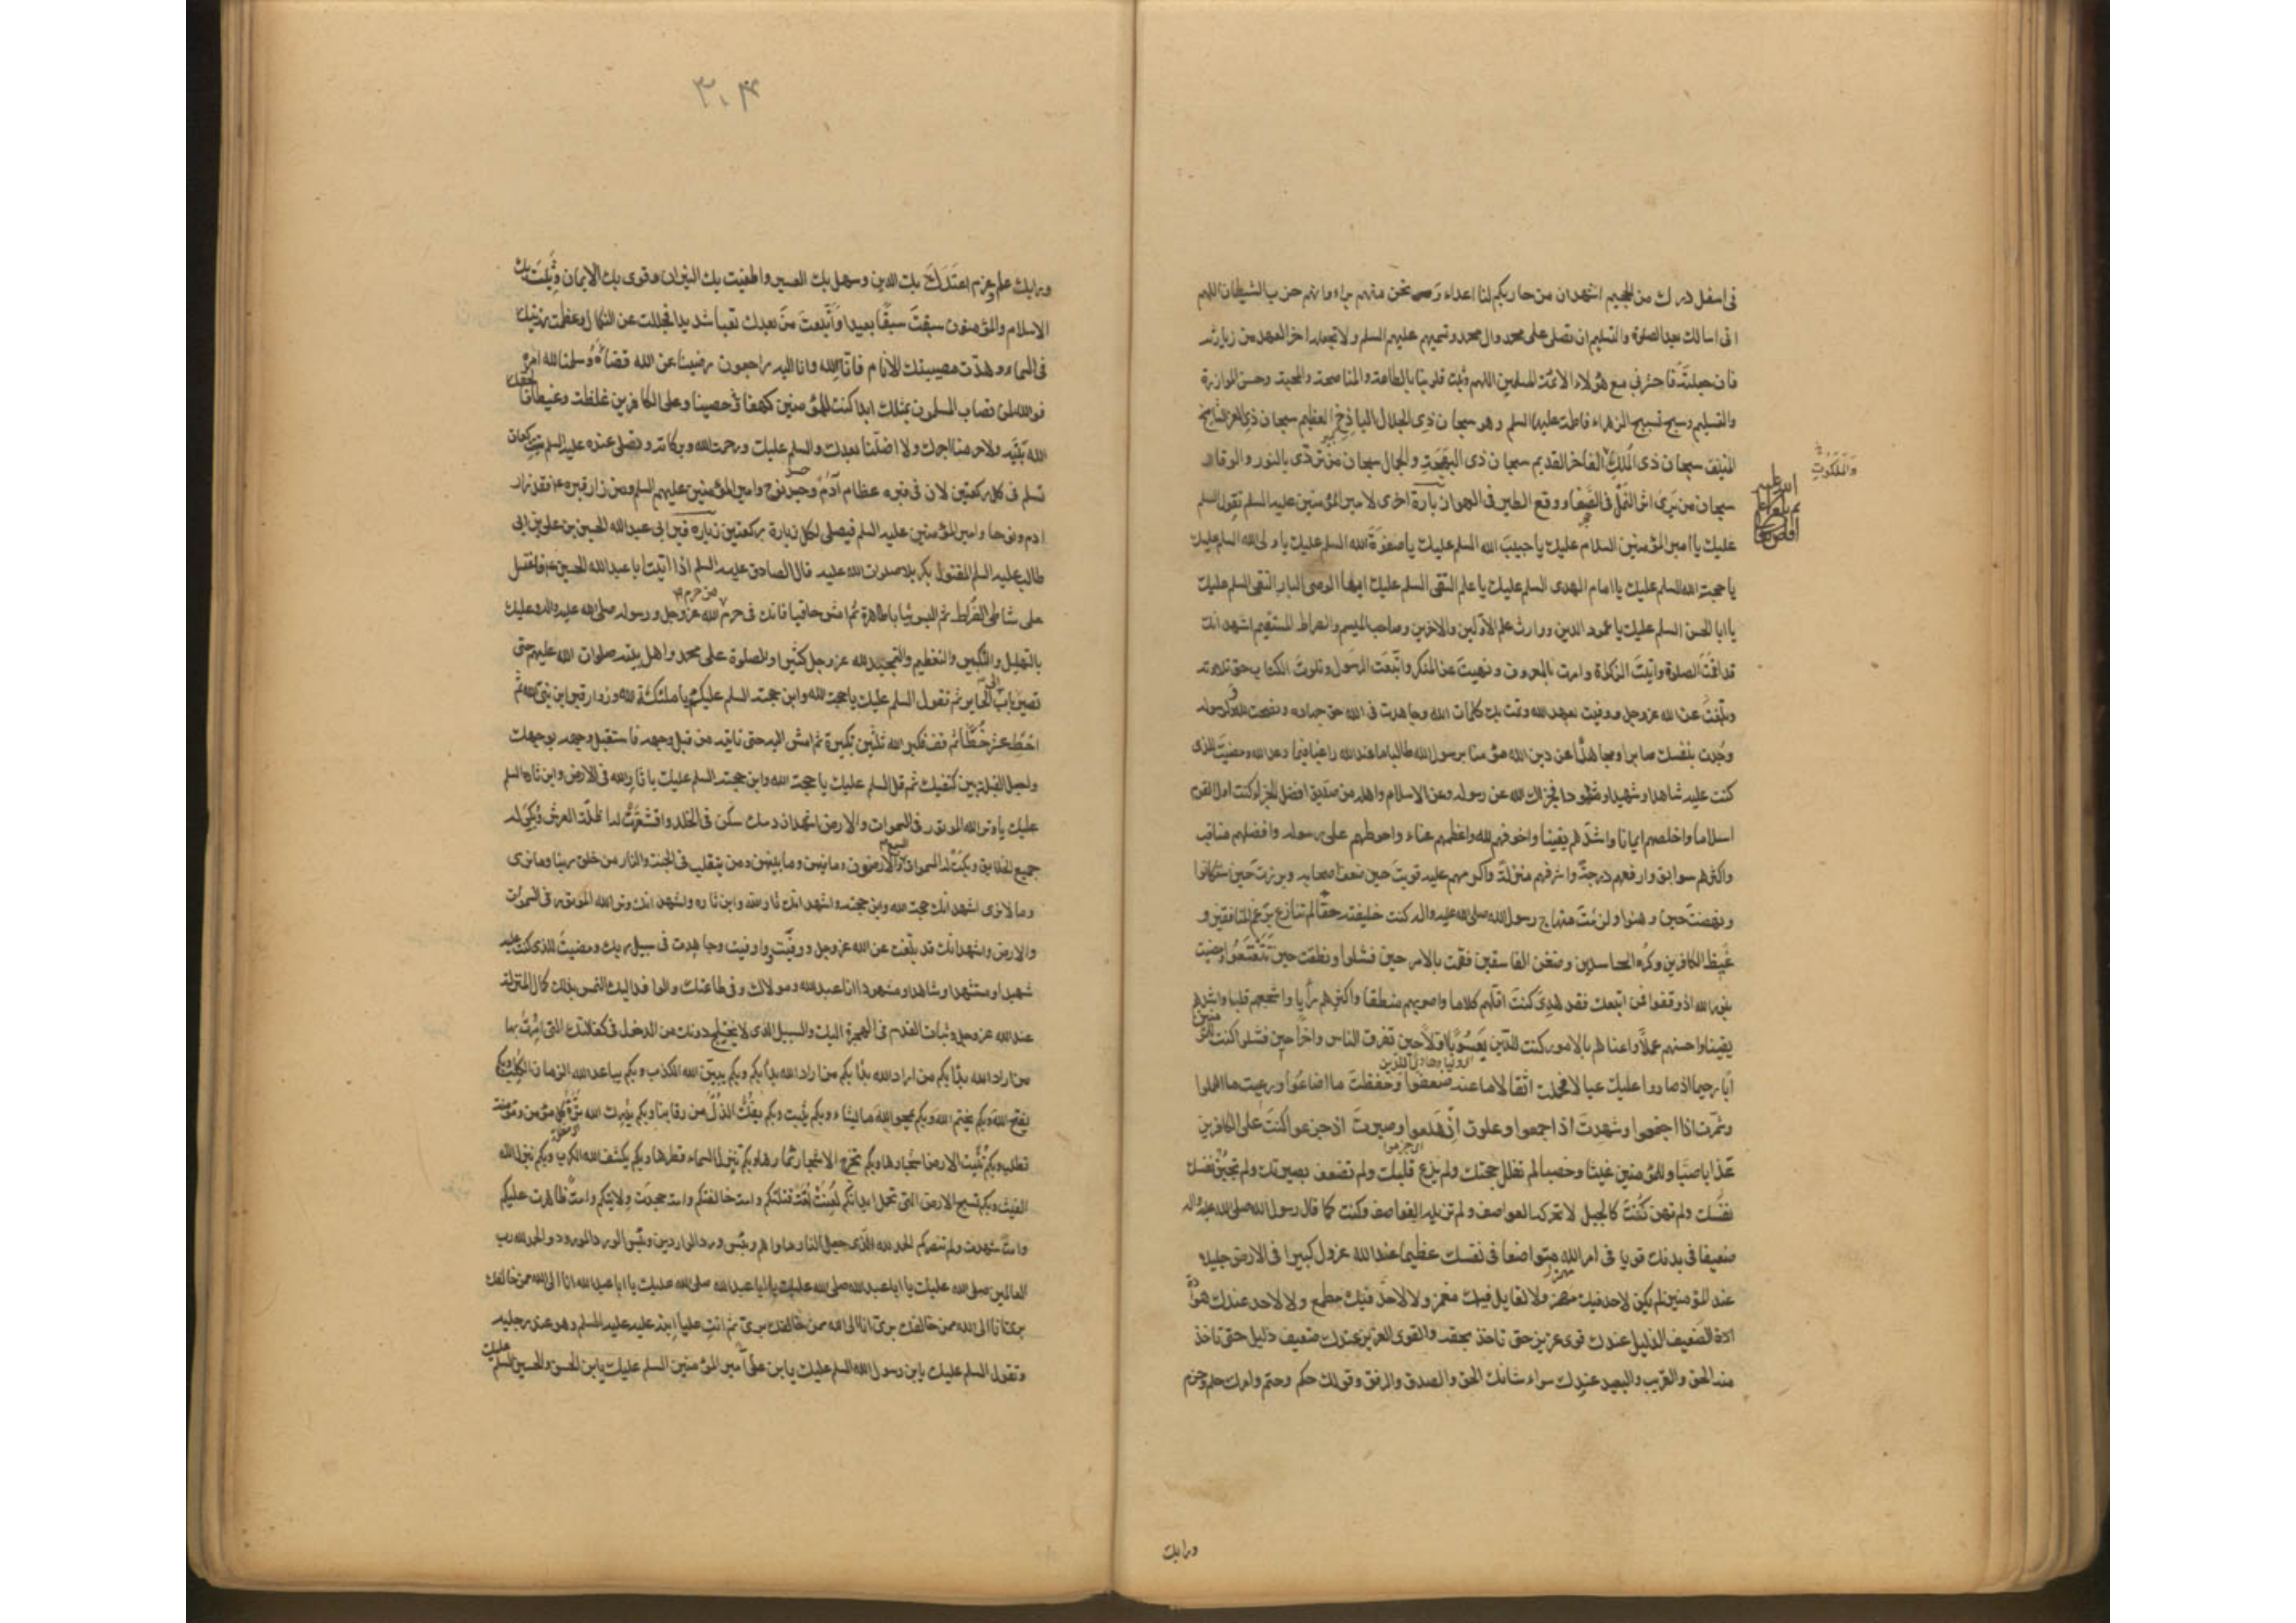 فى اسفل درك من الجحيم اشهد ان من حاربكم لنا اعداء ونحن منهم براء وانهم حزب الشيطان اللهم
انى اسالك بعد الصلوة والتسليم ان تصلى على محمد وال محمد وتسميهم عليهم السلم ولا تجعله اخر العهد من زيارته
فان جعلته فاحشرنى مع هؤلاء الائمة المسلمين اللهم وثبت قلوبنا بالطاعة والمناصحة والمحبة وحسن الموازرة
والتسليم وسبح تسبيح الزهراء فاطمة عليها السلم وهو سبحان ذى الجلال الباذخ العظيم سبحان ذى العز الشامخ
المنيف سبحان ذى الملك الفاخر القديم سبحان ذى البهجة والجمال سبحان من تردى بالنور والوقار
والملكوت
سبحان من يرى اثر النمل فى الصفا ووقع الطير فى الهوا زيارة اخرى لامير المؤمنين عليه السلم تقول السلم
عليك يا امير المؤمنين السلام عليك يا حبيب الله السلم عليك يا صفوة الله السلم عليك يا ولى الله السلم عليك
يا حجة الله السلم عليك يا امام الهدى السلم عليك يا علم التقى السلم عليك ايها الوصى البار التقى السلم عليك
يا ابا الحسن السلم عليك يا عمود الدين ووارث علم الاولين والاخرين وصاحب الميسم والصراط المستقيم اشهد انك
قد اقمت الصلوة وآتيت الزكوة وامرت بالمعروف ونهيت عن المنكر واتبعت الرسول وتلوت الكتاب حق تلاوته
وبلغت عن الله عز وجل ووفيت بعهد الله وتمت بك كلمات الله وجاهدت فى الله حق جهاده ونصحت لله ولرسوله
وجدت بنفسك صابرا ومجاهدا عن دين الله مؤمنا برسول الله طالبا ما عند الله راغبا فيما وعد الله ومضيت للذى
كنت عليه شاهدا وشهيدا ومشهودا فجزاك الله عن رسوله وعن الاسلام واهله من صديق افضل الجزاء كنت اول القوم
اسلاما واخلصهم ايمانا واشدهم يقينا واخوفهم لله واعظمهم عناء واحوطهم على رسوله وافضلهم مناقب
واكثرهم سوابق وارفعهم درجة واشرفهم منزلة واكرمهم عليه قويت حين ضعف اصحابه وبرزت حين استكانوا
ونهضت حين وهنوا ولزمت منهاج رسول الله صلى الله عليه واله كنت خليفته حقا لم تنازع برغم المنافقين و
غيظ الكافرين وكره الحاسدين وضغن الفاسقين فقمت بالامر حين فشلوا ونطقت حين تتعتعوا ومضيت
بنور الله اذ وقفوا فمن اتبعك فقد هدى كنت اقلهم كلاما واصوبهم منطقا واكثرهم رأيا واشجعهم قلبا واشدهم
يقينا واحسنهم عملا واعناهم بالامور كنت للدين يعسوبا اولا حين تفرق الناس واخرا حين فشلوا كنت للمؤمنين
أبا رحيما اذ صاروا عليك عيالا فحملت اثقال ما عنه ضعفوا وحفظت ما اضاعوا ورعيت ما اهملوا
وشمرت اذا اجتمعوا وشهدت اذ اجمعوا وعلوت اذ هلعوا وصبرت اذ جزعوا كنت على الكافرين
عذابا صبا وللمؤمنين غيثا وخصبا لم تفلل حجتك ولم يزغ قلبك ولم تضعف بصيرتك ولم تجبن نفسك
نفسك ولم تهن كنت كالجبل لا تحركه العواصف ولم تزيله القواصف وكنت كما قال رسول الله صلى الله عليه واله
ضعيفا فى بدنك قويا فى امر الله متواضعا فى نفسك عظيما عند الله عز وجل كبيرا فى الارض جليلا
عند المؤمنين لم يكن لاحد فيك مهمز ولا لقايل فيك مغمز ولا لاحد فيك مطمع ولا لاحد عندك هوادة
الضعيف الذليل عندك قوى عزيز حتى تاخذ بحقه والقوى العزيز عندك ضعيف ذليل حتى تاخذ
منه الحق والقريب والبعيد عندك سواء شانك الحق والصدق والرفق وقولك حكم وحتم وامرك حلم وحزم
ورايك
٣٠٤
ورايك علم وعزم اعتدل بك الدين وسهل بك العسير واطفيت بك النيران وقوى بك الايمان وثبت بك
الاسلام والمؤمنون سبقت سبقا بعيدا واتعبت من بعدك تعبا شديدا فجللت عن النكال وعظمت رزيتك
فى السماء وهدت مصيبتك الانام فانا لله وانا اليه راجعون رضينا عن الله قضاءه وسلمنا لله امره
فوالله لن يصاب المسلمون بمثلك ابدا كنت للمؤمنين كهفا حصينا وعلى الكافرين غلظة وغيظا فالحقك
الله بنبيه ولا حرمنا اجرك ولا اضلنا بعدك والسلم عليك ورحمة الله وبركاته وتصلى عنده عليه السلم ست ركعات
تسلم فى كل ركعتين لان فى قبره عظام آدم وجسد نوح وامير المؤمنين عليهم السلم ومن زار قبره فقد زار
ادم ونوحا وامير المؤمنين عليه السلم فيصلى لكل زيارة ركعتين زيارة قبر ابى عبد الله الحسين بن على بن ابى
طالب عليه السلم المقتول بكربلا صلوات الله عليه قال الصادق عليه السلم اذا اتيت ابا عبد الله الحسين ع فاغتسل
على شاطى الفرات ثم البس ثيابا طاهرة ثم امش حافيا فانك فى حرم من حرم الله عز وجل ورسوله صلى الله عليه واله وعليك
بالتهليل والتكبير والتعظيم والتمجيد لله عز وجل كثيرا والصلوة على محمد واهل بيته صلوات الله عليهم حتى
تصير الى باب الحاير ثم تقول السلم عليك يا حجة الله وابن حجته السلم عليكم يا ملئكة الله وزوار قبر ابن نبى الله ثم
اخط عشر خطا ثم قف فكبر الله ثلثين تكبيرة ثم امش اليه حتى تاتيه من قبل وجهه فاستقبل وجهه بوجهك
واجعل القبلة بين كتفيك ثم قل السلم عليك يا حجة الله وابن حجته السلم عليك يا ثار الله فى الارض وابن ثاره السلم
عليك يا وتر الله الموتور فى السموات والارض اشهد ان دمك سكن فى الخلد واقشعرت له اظلة العرش وبكى له
جميع الخلايق وبكت له السموات السبع والارضون وما فيهن وما بينهن ومن يتقلب فى الجنة والنار من خلق ربنا وما يرى
وما لا يرى اشهد انك حجة الله وابن حجته واشهد انك ثار الله وابن ثاره واشهد انك وتر الله الموتور فى السموات
والارض واشهد انك قد بلغت عن الله عز وجل ووفيت واوفيت وجاهدت فى سبيل ربك ومضيت للذى كنت عليه
شهيدا ومستشهدا وشاهدا ومشهودا انا عبد الله ومولاك وفى طاعتك والوافد اليك التمس بذلك كمال المنزلة
عند الله عز وجل وثبات القدم فى الهجرة اليك والسبيل الذى لا يختلج دونك من الدخول فى كفالتك التى امرت بها
من اراد الله بدأ بكم من اراد الله بدأ بكم من اراد الله بدأ بكم وبكم يبين الله الكذب وبكم يباعد الله الزمان الكلب وبكم
يفتح الله وبكم يختم الله وبكم يمحوا الله ما يشاء وبكم يثبت وبكم يفك الذل من رقابنا وبكم يدرك الله ترة كل مؤمن ومؤمنة
تطلب وبكم تنبت الارض اشجارها وبكم تخرج الاشجار ثمارها وبكم تنزل السماء قطرها وبكم يكشف الله الكرب وبكم ينزل الله
الغيث وبكم تسبح الارض التى تحمل ابدانكم لعنت امة قتلتكم وامة خالفتكم وامة جحدت ولايتكم وامة ظاهرت عليكم
وامة شهدت ولم تنصركم الحمد لله الذى جعل النار ماواهم وبئس ورد الواردين وبئس الورد المورود والحمد لله رب
العالمين صلى الله عليك يا ابا عبد الله صلى الله عليك يا ابا عبد الله صلى الله عليك يا ابا عبد الله انا الى الله ممن خالفك
برئ انا الى الله ممن خالفك برئ انا الى الله ممن خالفك برئ ثم ائت عليا ابنه عليه السلم وهو عند رجليه
وتقول السلم عليك يابن رسول الله السلم عليك يابن على امير المؤمنين السلم عليك يابن الحسن والحسين السلم عليك